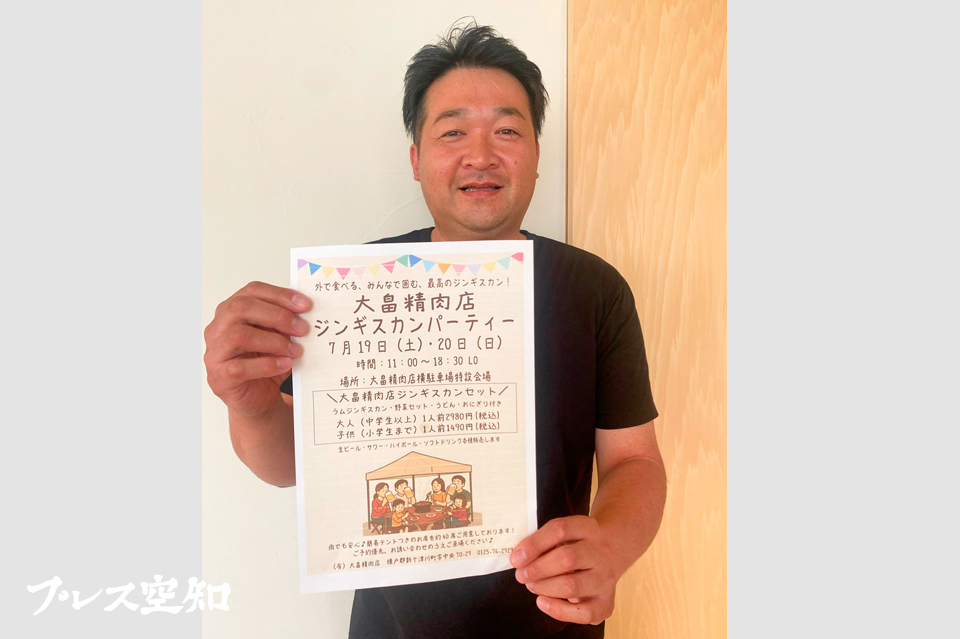 外で食べる、みんなで囲む、最高のジンギスカン！
大畠精肉店
ジンギスカンパーティー
7月19日（土）・20日（日）
時間：11：00～18：30 LO
場所：大畠精肉店横駐車場特設会場
＼大畠精肉店ジンギスカンセット／
ラムジンギスカン・野菜セット・うどん・おにぎり付き
大人（中学生以上）1人前2980円（税込）
子供（小学生まで）1人前1490円（税込）
生ビール・サワー・ハイボール・ソフトドリンク各種販売します
雨でも安心♪簡易テントつきのお席を約40席ご用意しております！
ご予約優先。お問い合わせのうえご来場ください♪
（有）大畠精肉店 樺戸郡新十津川町字中央70-29 0125-76-2929
プレス空知